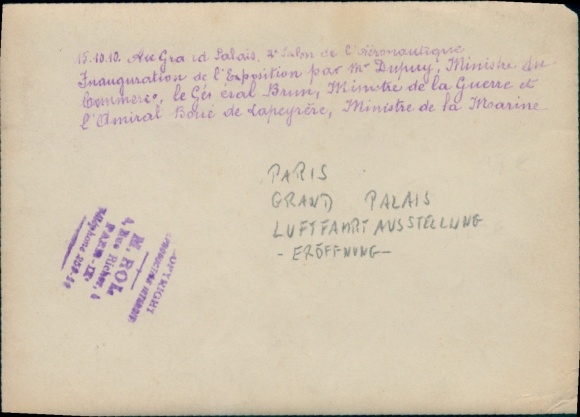 15.10.10. Au Grand Palais. 2e Salon de l'Aéronautique
Inauguration de l'Exposition par Mr Dupuy, Ministre du
Commerce, le Général Brun, Ministre de la Guerre et
l'Amiral Boué de Lapeyrère, Ministre de la Marine
PARIS
GRAND PALAIS
LUFTFAHRTAUSSTELLUNG
- ERÖFFNUNG -
COPYRIGHT
REPRODUCTION INTERDITE
M. ROL
4, Rue Richer, 4
PARIS - IXe
Téléphone